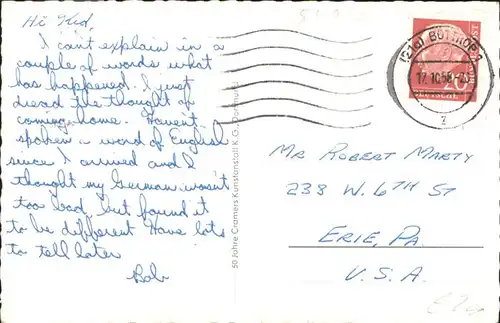 Hi Kid,
I can't explain in a
couple of words what
has happened. I just
dread the thought of
coming home. Havent
spoken a word of English
since I arrived and I
thought my German wasnt
too bad, but found it
to be different. Have lots
to tell later
Bob
50 Jahre Cramers Kunstanstalt K.G., Dortmund
(21a) BOTTROP 1
17.10.58
z
20
MR ROBERT MARTY
233 W. 6TH ST
ERIE, PA.
U.S.A.